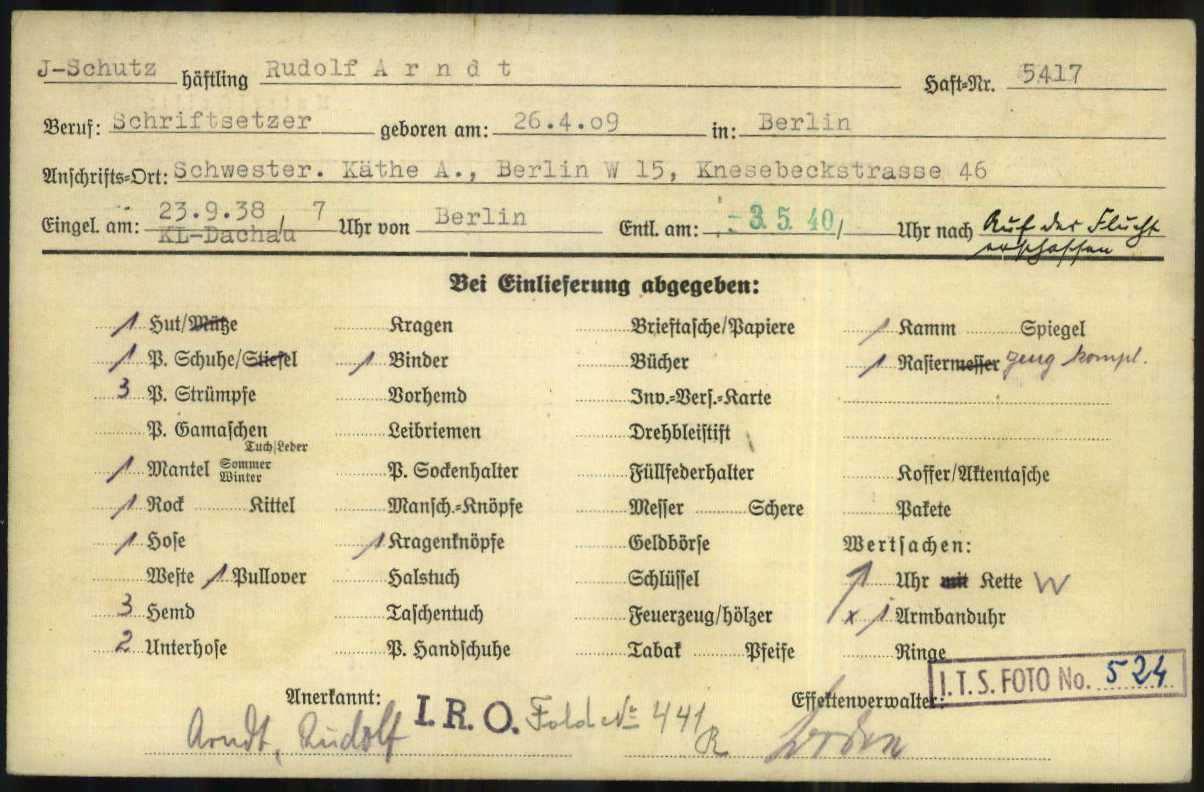 J-Schutz häftling Rudolf A r n d t Haft=Nr. 5417
Beruf: Schriftsetzer geboren am: 26.4.09 in: Berlin
Anschrifts=Ort: Schwester. Käthe A., Berlin W 15, Knesebeckstrasse 46
Eingel. am: 23.9.38 / 7 Uhr von Berlin Entl. am: - 3. 5. 40 / Uhr nach Auf der Flucht
KL-Dachau erschossen
Bei Einlieferung abgegeben:
1 Hut/Mütze Kragen Brieftasche/Papiere 1 Kamm Spiegel
1 P. Schuhe/Stiefel 1 Binder Bücher 1 Rasiermesser zeug kompl.
3 P. Strümpfe Vorhemd Inv.=Vers.=Karte
P. Gamaschen Tuch/Leder Leibriemen Drehbleistift
1 Mantel Sommer Winter P. Sockenhalter Füllfederhalter Koffer/Aktentasche
1 Rock Kittel Mansch.=Knöpfe Messer Schere Pakete
1 Hose 1 Kragenknöpfe Geldbörse Wertsachen:
Weste 1 Pullover Halstuch Schlüssel 1 Uhr mit Kette W
3 Hemd Taschentuch Feuerzeug/hölzer x 1 Armbanduhr
2 Unterhose P. Handschuhe Tabak Pfeife Ringe
I.T.S. FOTO No. 524
Anerkannt: Effektenverwalter:
Arndt, Rudolf I.R.O. 441 R